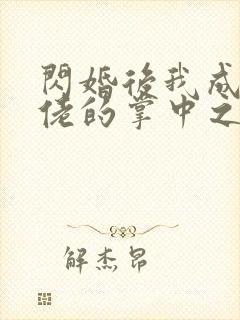 閃婚後我成
佬的掌中之
解杰昂